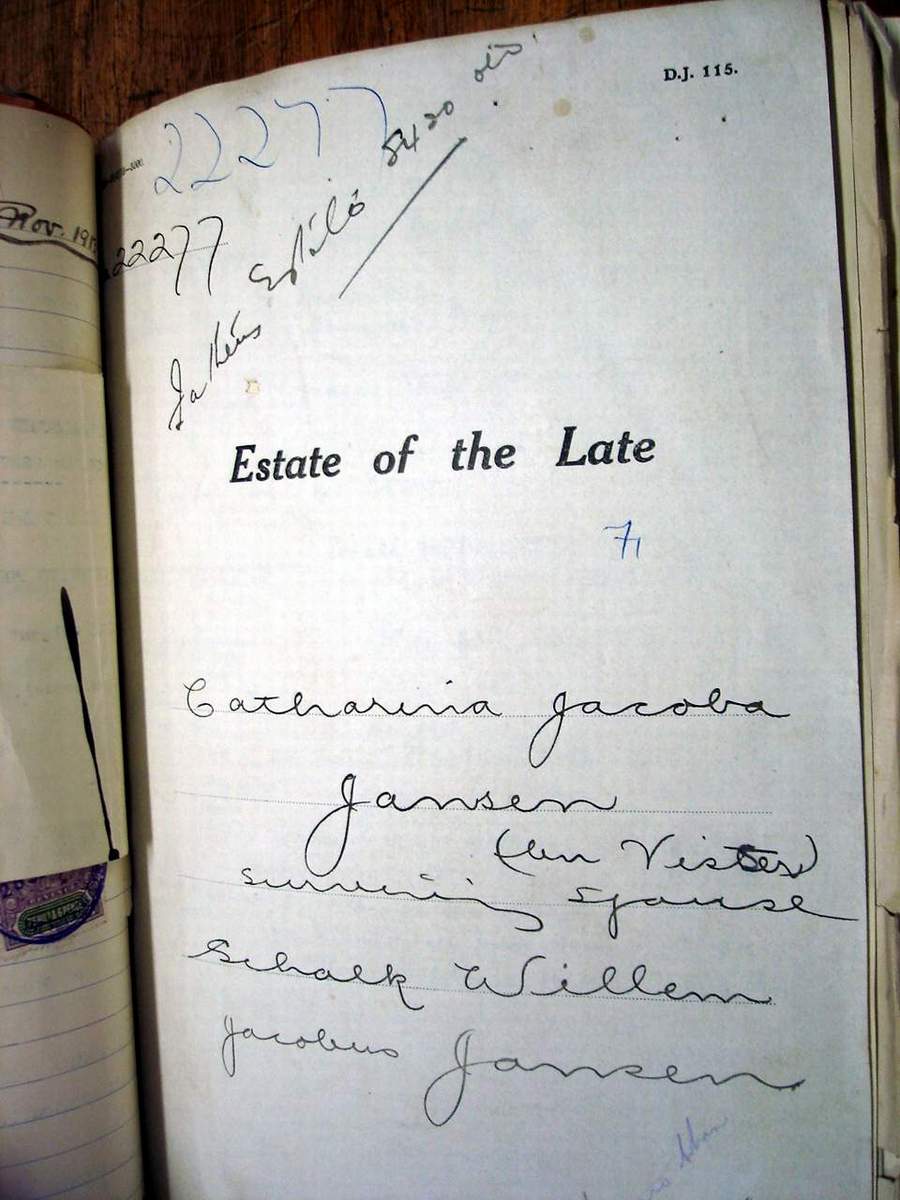 D.J. 115.
22277
Nov. 191
22277
Estate of the Late
71
Catharina Jacoba
Jansen
(Visser)
surviving spouse
Schalk Willem
Jacobus Jansen